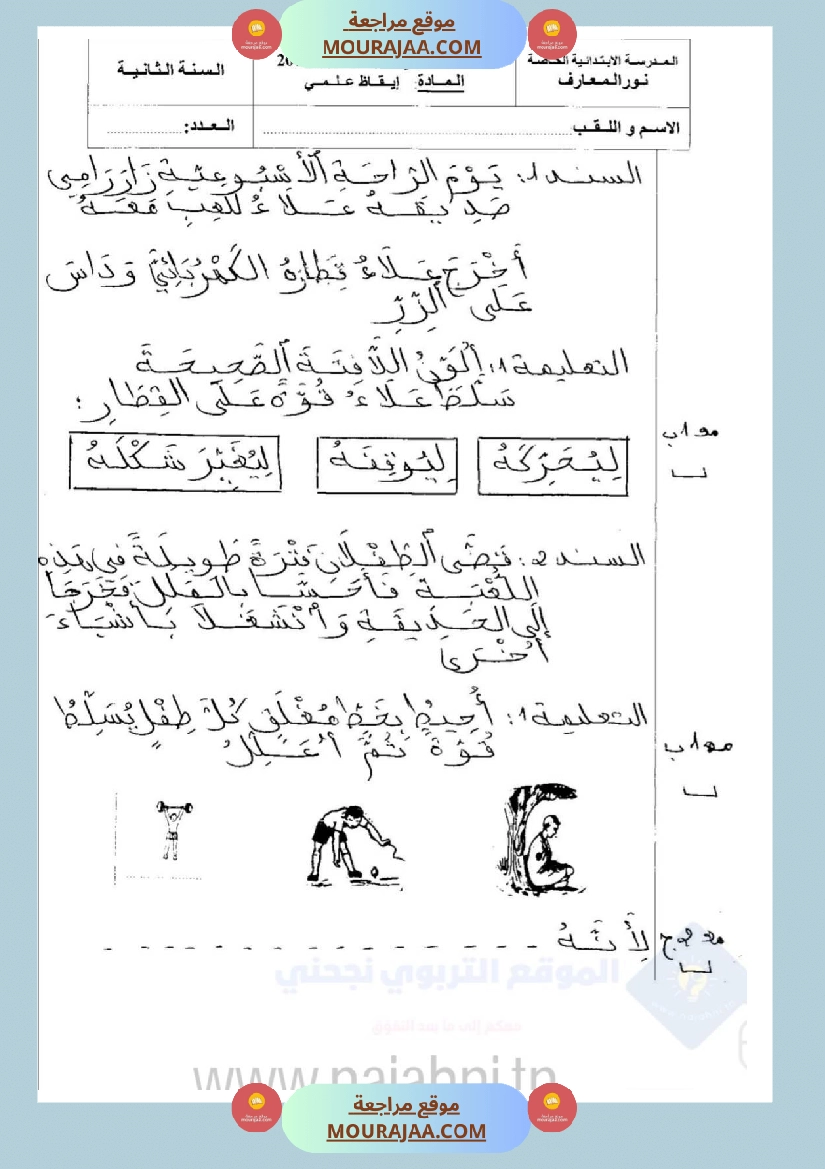 موقع مراجعة
MOURAJAA.COM
المدرسة الابتدائية الخاصة
نور المعارف
المادة: إيقاظ علمي
السنة الثانية
الاسم و اللقب
العدد:
السند 1: يَوْمَ الرَّاحَةِ الْأُسْبُوعِيَّةِ زَارَ رَامِي
صَدِيقَهُ عَلَاءُ لِلَّعِبِ مَعَهُ
أَخْرَجَ عَلَاءُ قِطَارَهُ الكَهْرُبَائِيَّ وَدَاسَ
عَلَى الزِّرِّ
التعليمة 1: أُلَوِّنُ اللَّافِتَةَ الصَّحِيحَةَ
سَلَّطَ عَلَاءُ قُوَّةً عَلَى القِطَارِ:
مع 1 ب
لِيُحَرِّكَهُ
لِيُوقِفَهُ
لِيُغَيِّرَ شَكْلَهُ
السند 2: قَضَّى الطِّفْلَانِ فَتْرَةً طَوِيلَةً فِي هَذِهِ
اللُّعْبَةِ فَأَحَسَّا بِالمَلَلِ فَخَرَجَا
إِلَى الحَدِيقَةِ وَانْشَغَلَا بِأَشْيَاءَ
أُخْرَى
التعليمة 1: أُحِيطُ بِخَطٍّ مُغْلَقٍ كُلَّ طِفْلٍ يُسَلِّطُ
قُوَّةً ثُمَّ أُعَلِّلُ
مع 1 ب
لِأَنَّهُ
الموقع التربوي نجحني
معكم إلى ما بعد التفوق
www.najahni.tn
موقع مراجعة
MOURAJAA.COM